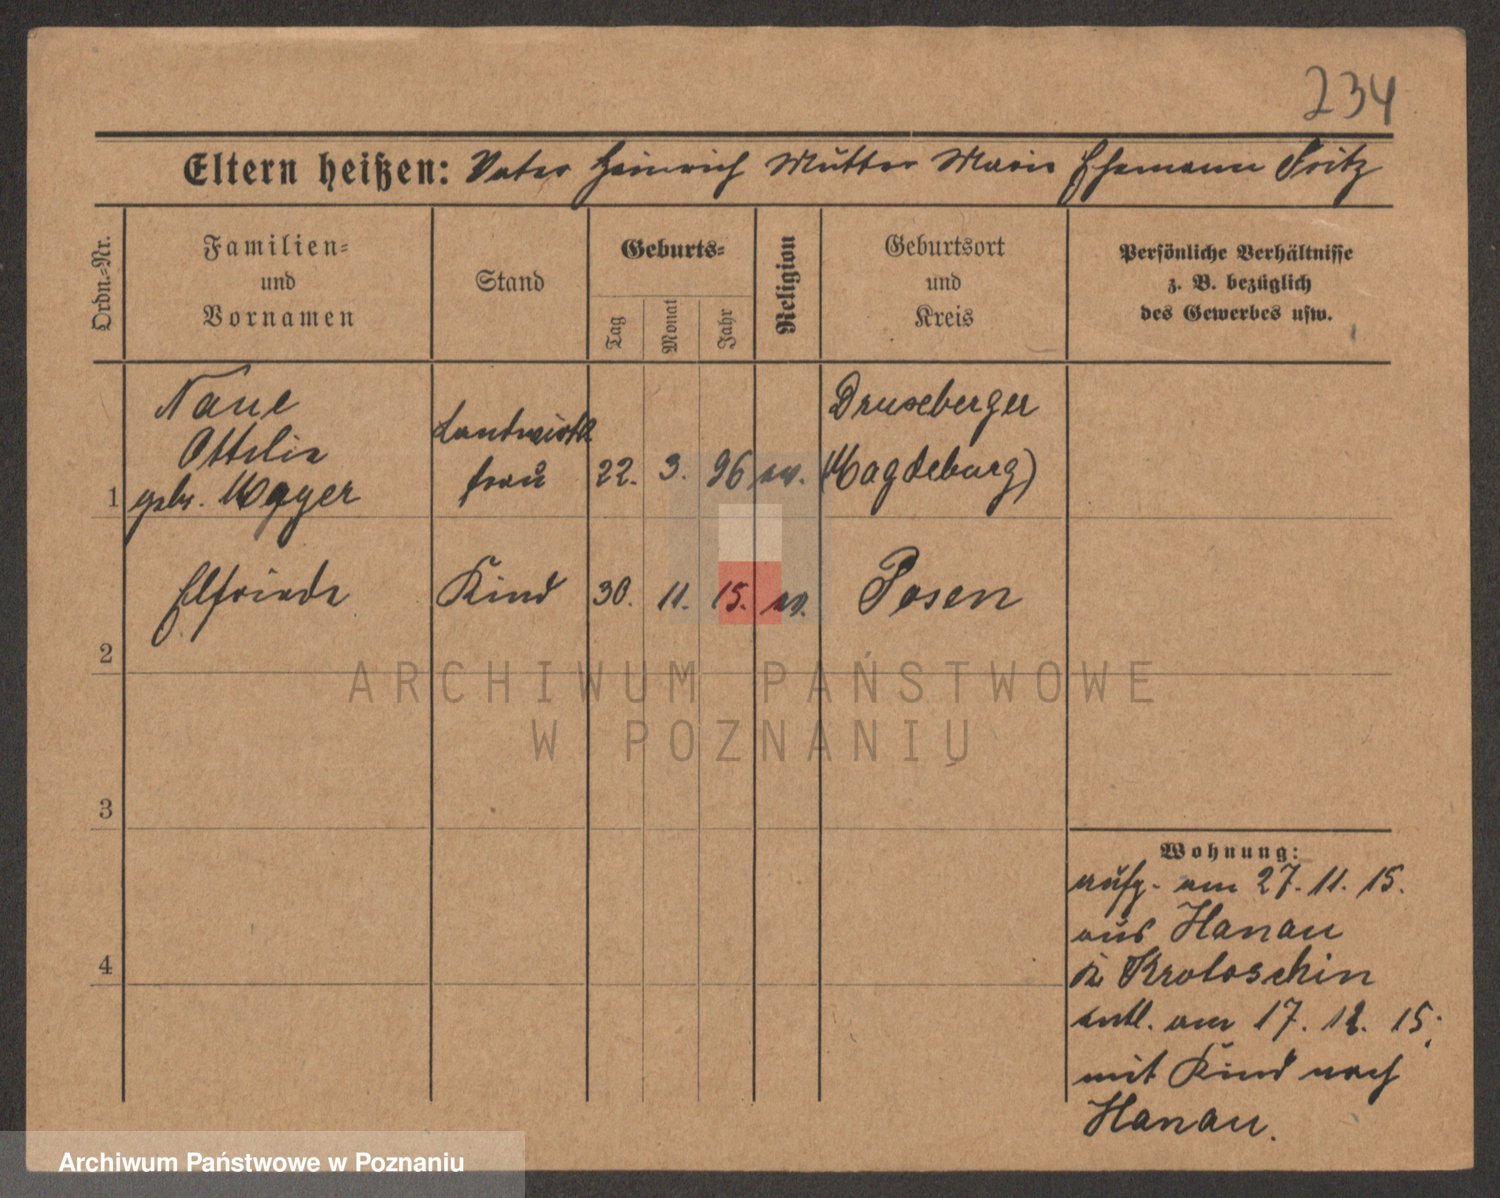 234
Eltern heißen: Vater Heinrich Mutter Marie Ehemann Fritz
Ordn.-Nr.
Familien-
und
Vornamen
Stand
Geburts-
Tag
Monat
Jahr
Religion
Geburtsort
und
Kreis
Persönliche Verhältnisse
z. B. bezüglich
des Gewerbes usw.
1
Naue
Ottilie
gebr. Mayer
Landwirth
frau
22. 3. 96 ev.
Druxberger
(Magdeburg)
2
Elfriede
Kind
30. 11. 15. ev.
Posen
3
4
Wohnung:
aufg. am 27. 11. 15.
aus Hanau
Kr. Krotoschin
entl. am 17. 12. 15;
mit Kind nach
Hanau.
ARCHIWUM PAŃSTWOWE
W POZNANIU
Archiwum Państwowe w Poznaniu